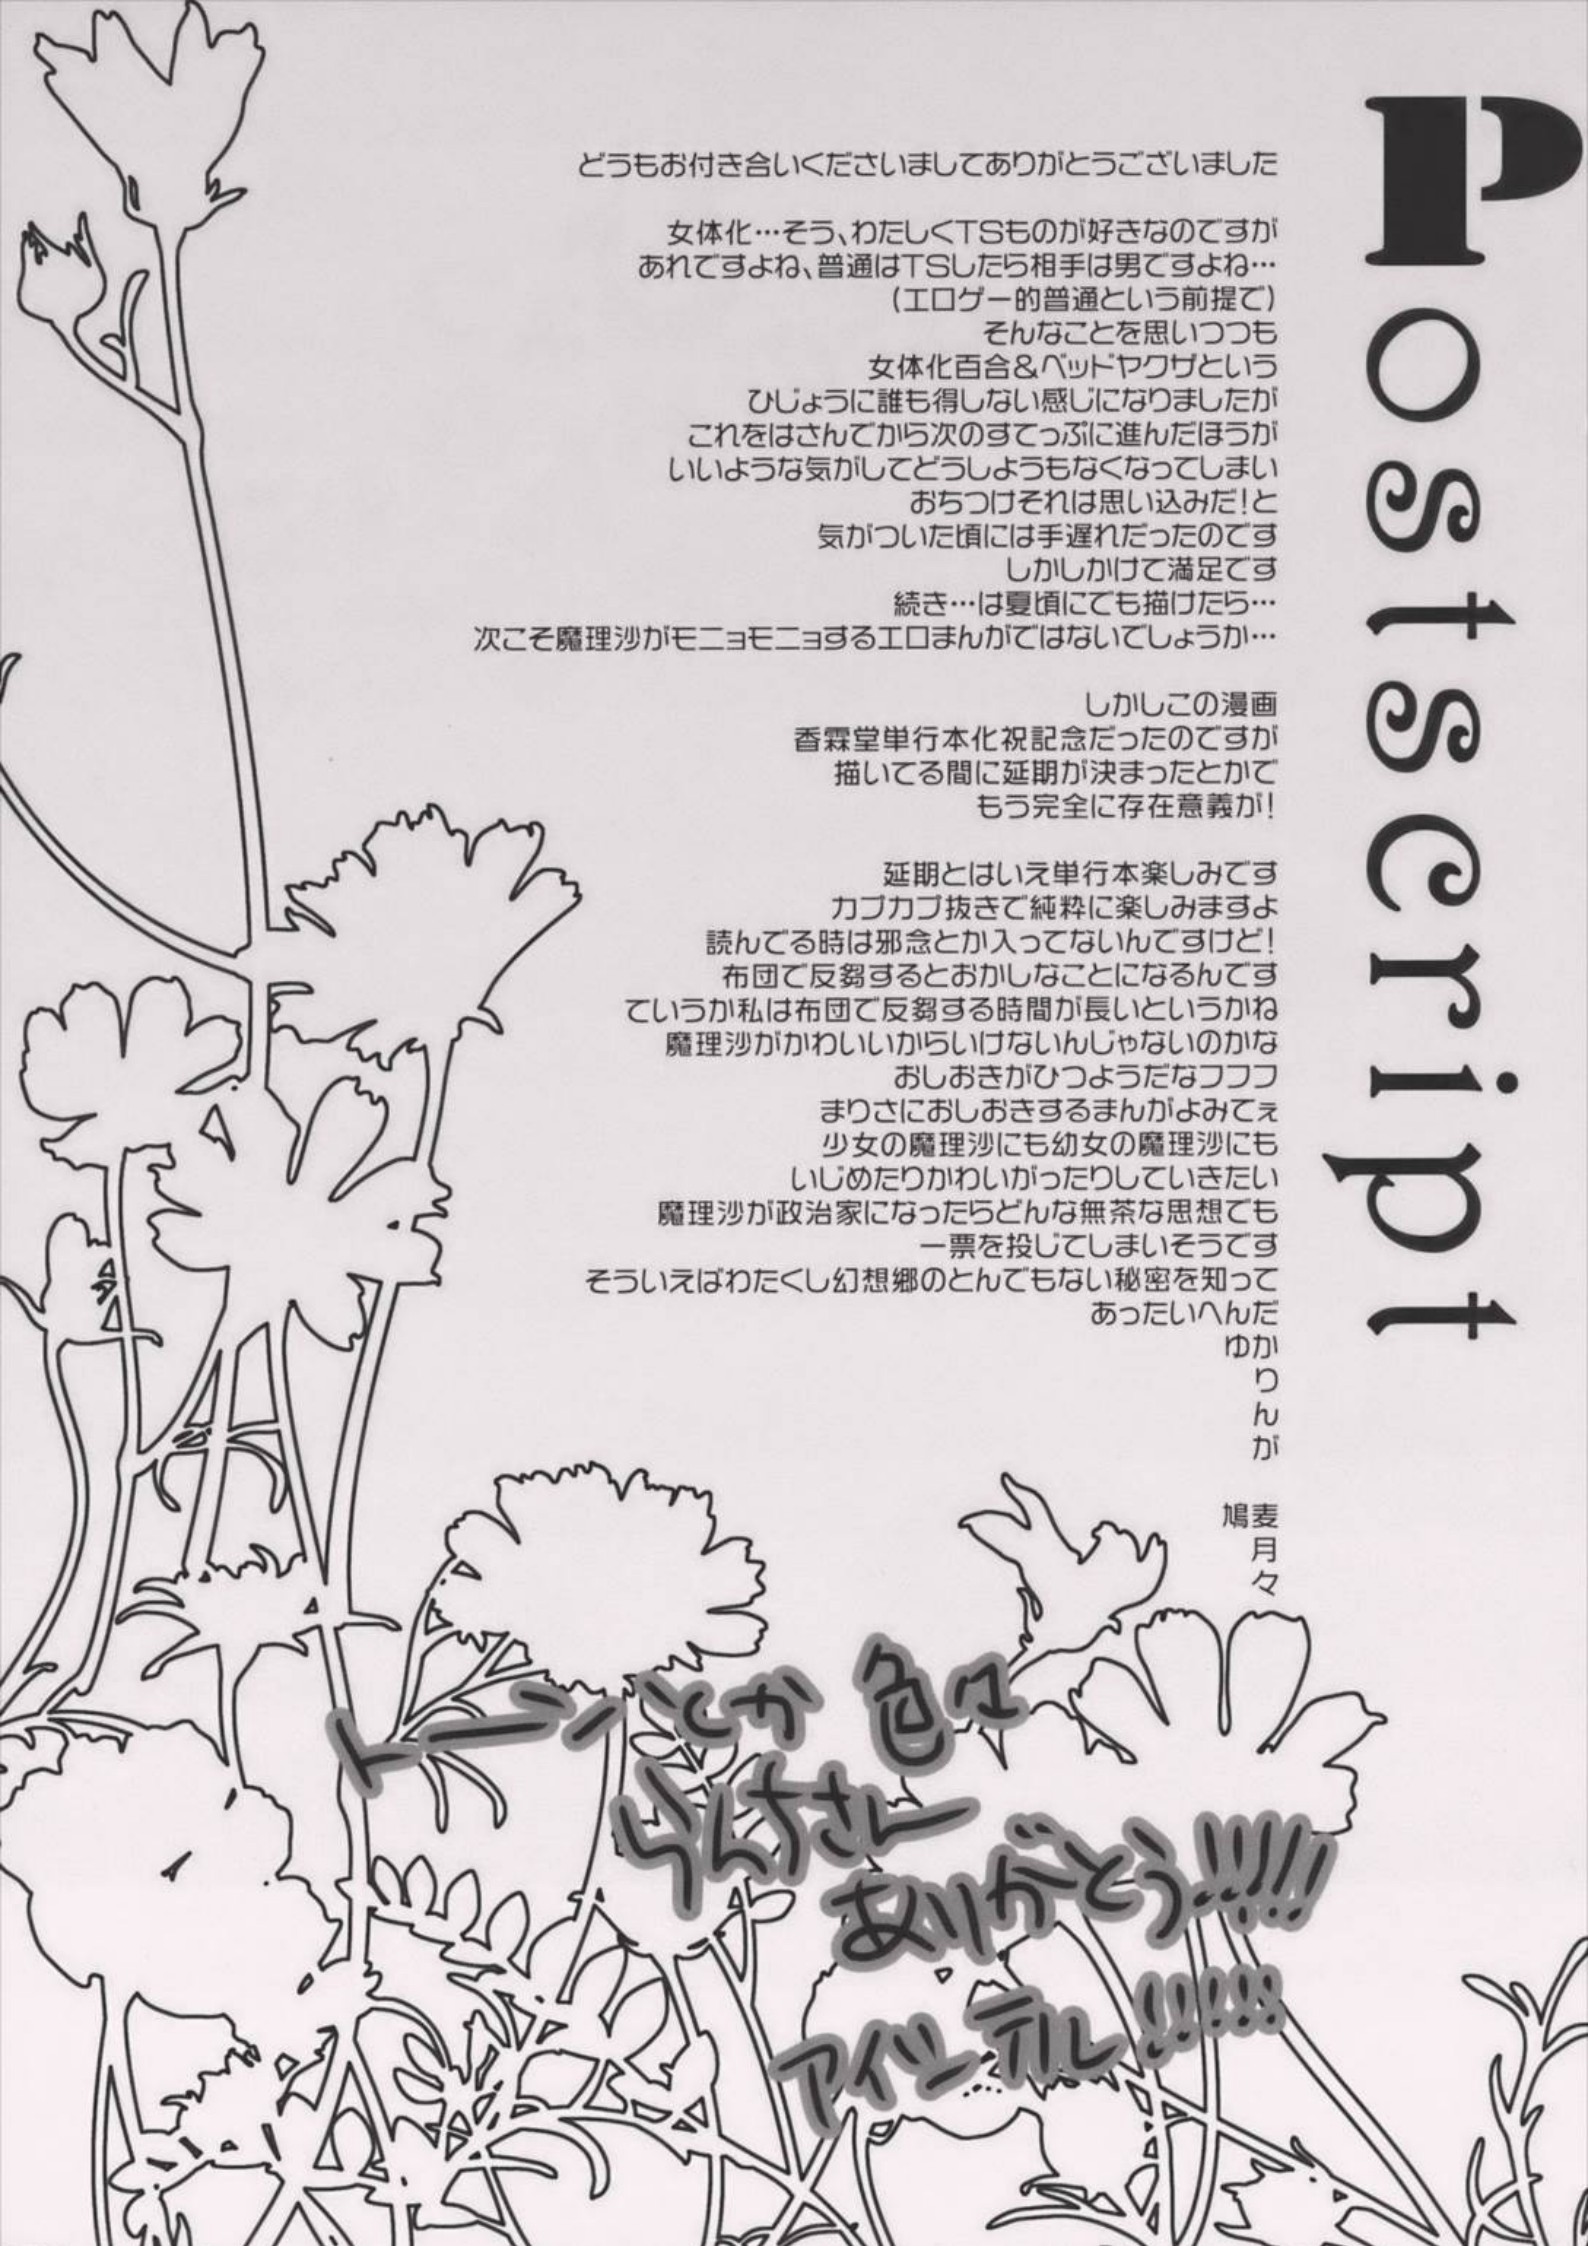 Postscript
どうもお付き合いくださいましてありがとうございました
女体化…そう、わたしくTSものが好きなのですが
あれですよね、普通はTSしたら相手は男ですよね…
(エロゲー的普通という前提で)
そんなことを思いつつも
女体化百合&ベッドヤクザという
ひじょうに誰も得しない感じになりましたが
これをはさんでから次のすてっぷに進んだほうが
いいような気がしてどうしようもなくなってしまい
おちつけそれは思い込みだ!と
気がついた頃には手遅れだったのです
しかしかけて満足です
続き…は夏頃にでも描けたら…
次こそ魔理沙がモニョモニョするエロまんがではないでしょうか…
しかしこの漫画
香霖堂単行本化祝記念だったのですが
描いてる間に延期が決まったとかで
もう完全に存在意義が!
延期とはいえ単行本楽しみです
カプカプ抜きで純粋に楽しみますよ
読んでる時は邪念とか入ってないんですけど!
布団で反芻するとおかしなことになるんです
ていうか私は布団で反芻する時間が長いというかね
魔理沙がかわいいからいけないんじゃないのかな
おしおきがひつようだなフフフ
まりさにおしおきするまんがよみてぇ
少女の魔理沙にも幼女の魔理沙にも
いじめたりかわいがったりしていきたい
魔理沙が政治家になったらどんな無茶な思想でも
一票を投じてしまいそうです
そういえばわたくし幻想郷のとんでもない秘密を知って
あったいへんだ
ゆか
り
ん
が
鳩麦
月
々
トーンとか色々
らんちさん
ありがとう!!!!!
アイシテル!!!!!